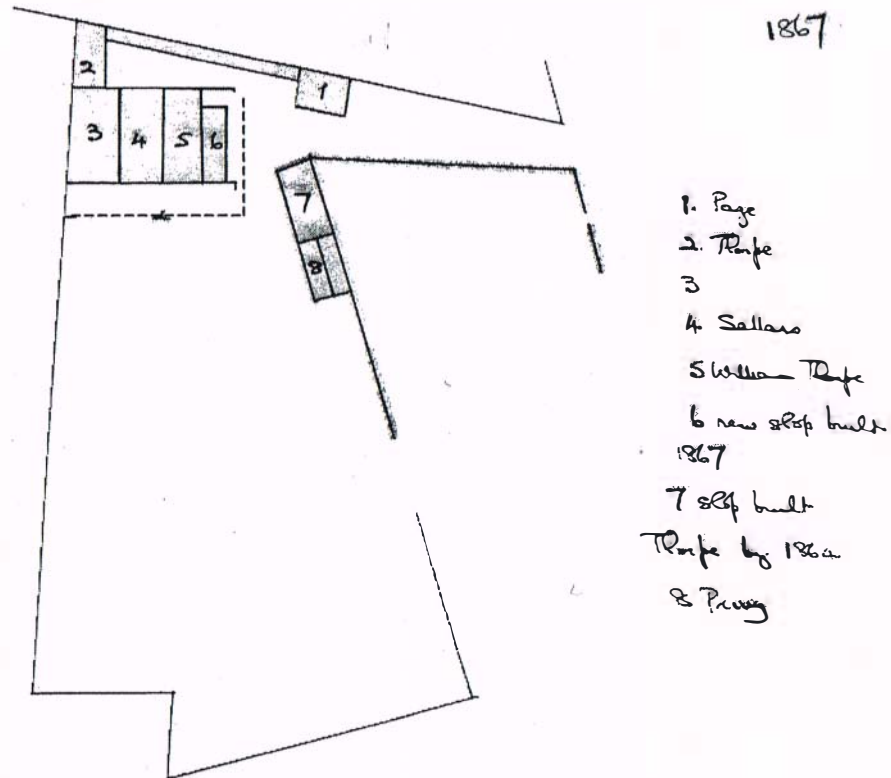 1867
1
2
3
4
5
6
7
8
1. Page
2. Thorpe
3
4. Sellars
5 William Thorpe
6 new shop built
1867
7 shop built
Thorpe by
8